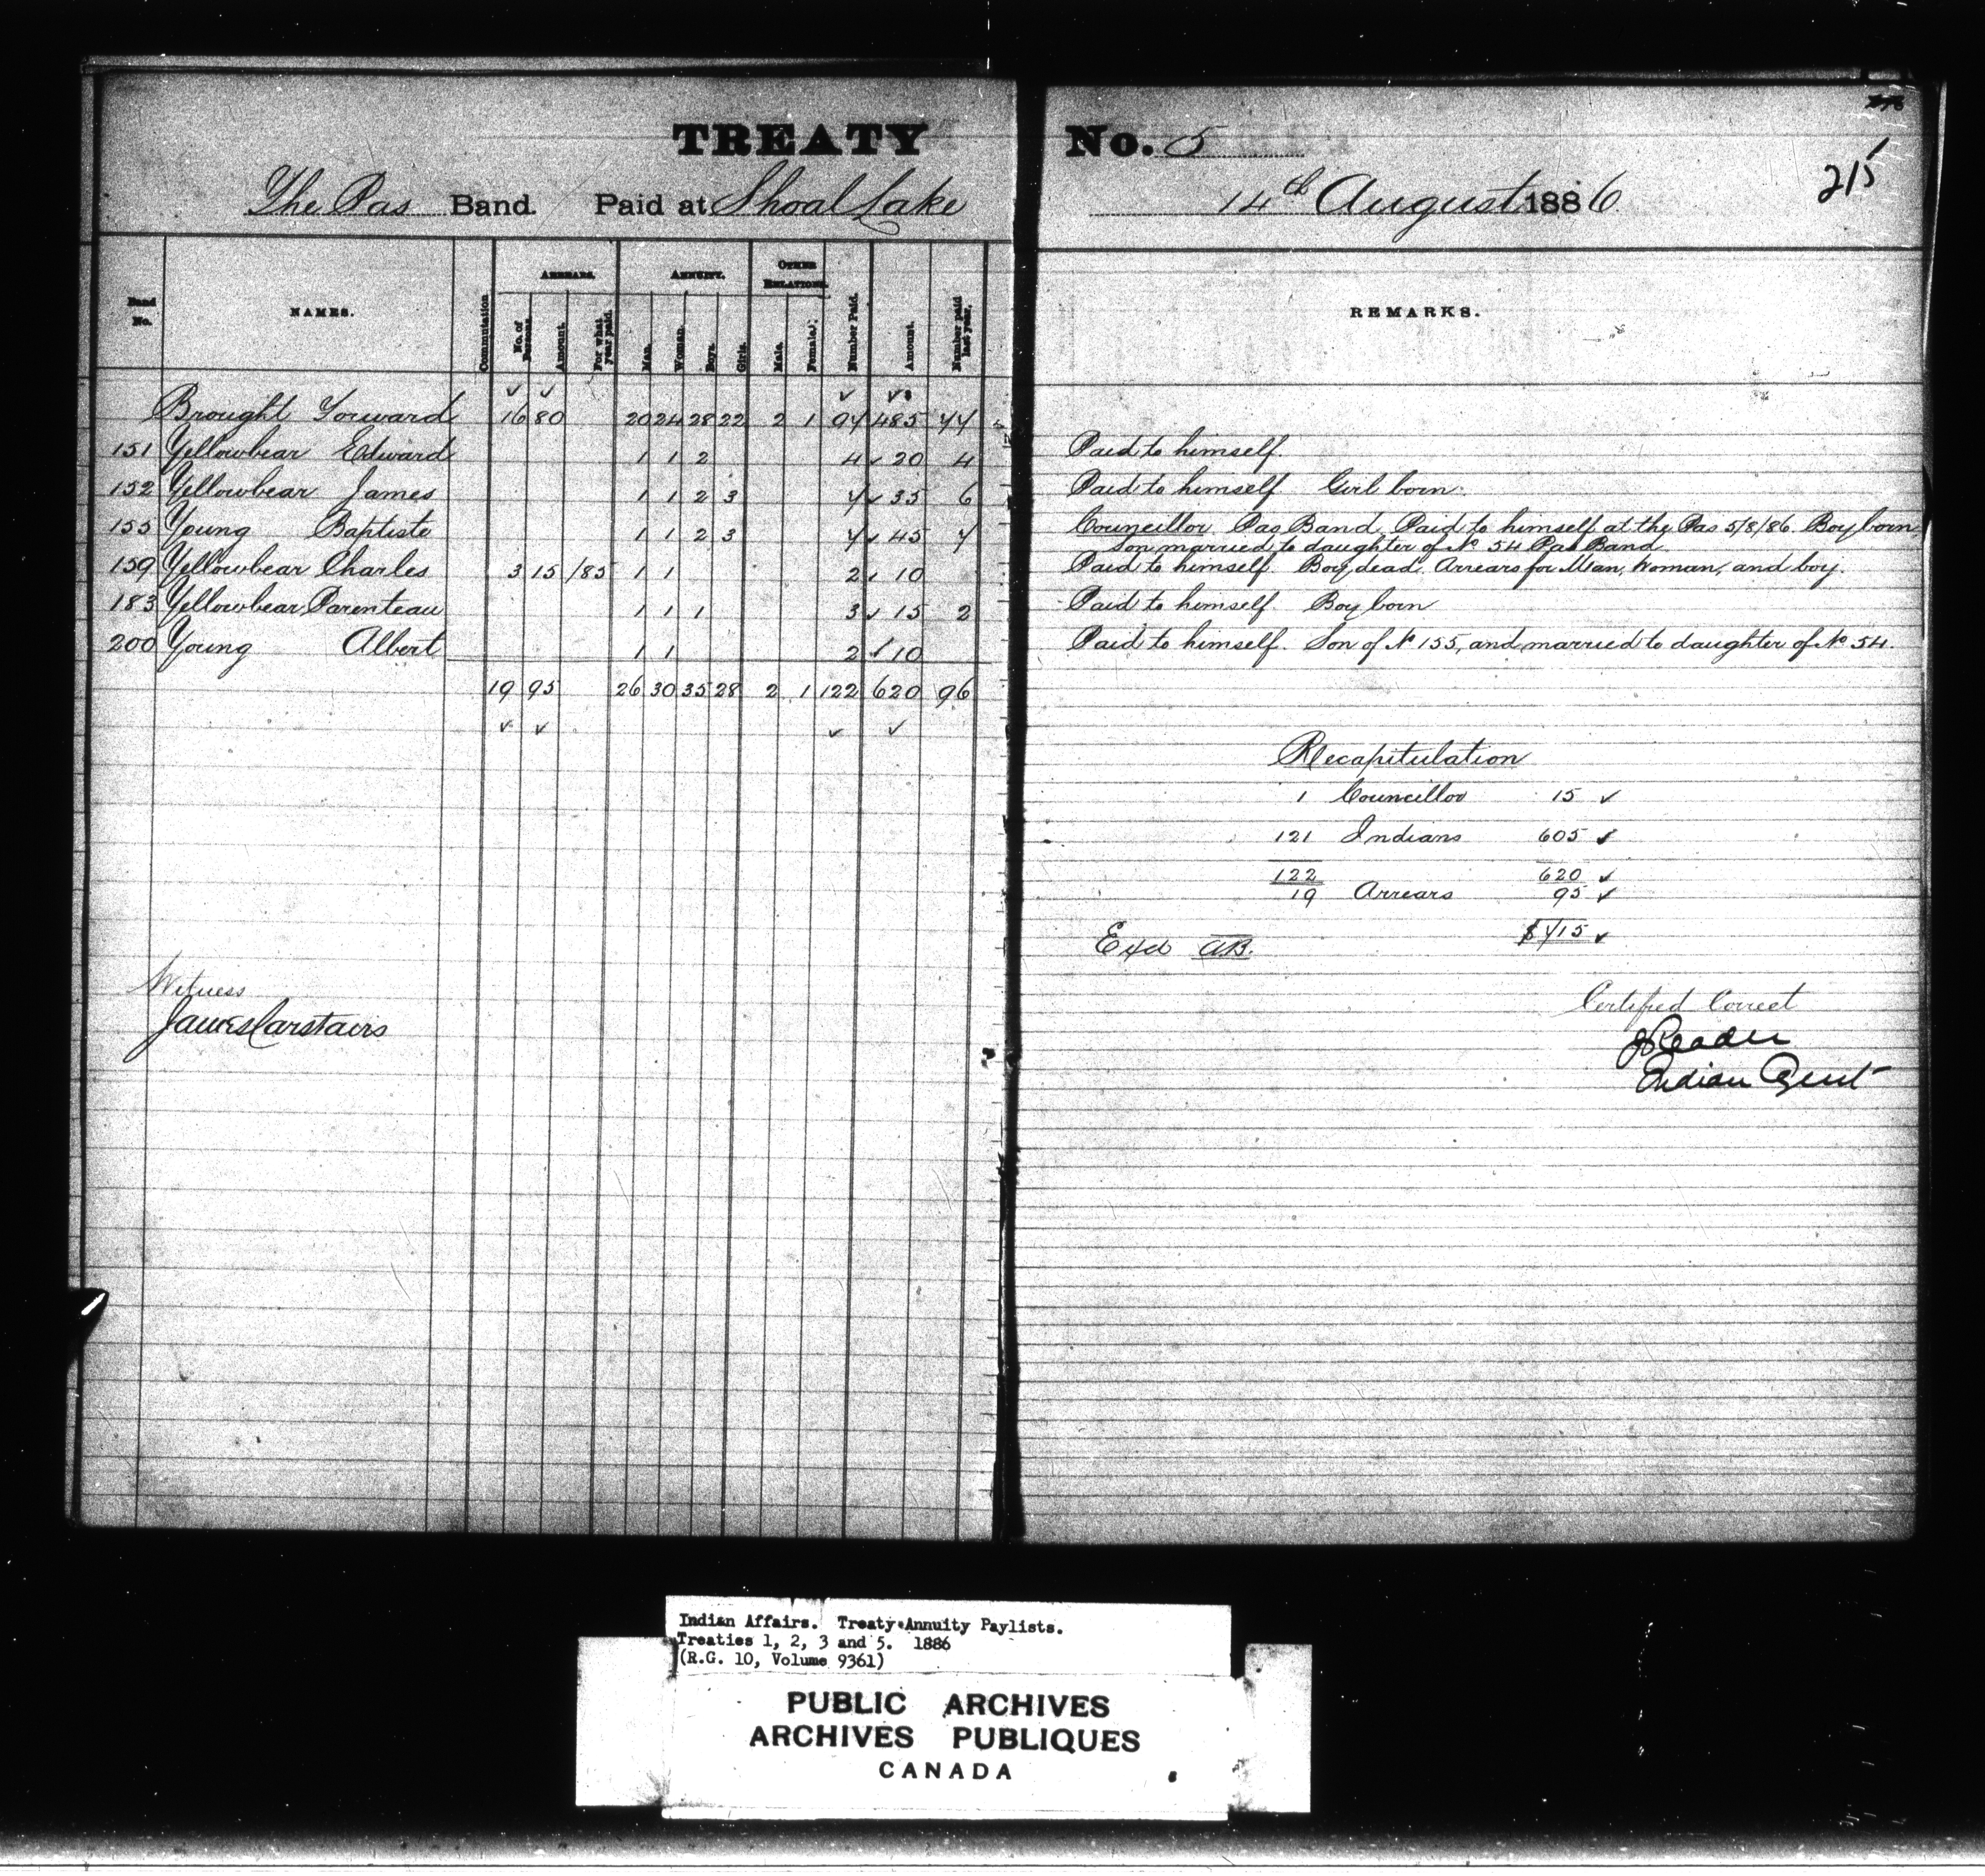 TREATY No. 5
215
The Pas Band. Paid at Shoal Lake 14th August 1886
Band No. NAMES. Commutation ARREARS. No. of Persons. Amount. For what year paid. ANNUITY. Man. Woman. Boys. Girls. OTHER RELATIONS. Male. Females. Number Paid. Amount. Number paid last year. REMARKS.
Brought Forward 16 80 20 24 28 22 2 1 97 485 77
151 Yellowbear Edward 1 1 2 4 20 4 Paid to himself.
152 Yellowbear James 1 1 2 3 7 35 6 Paid to himself. Girl born.
155 Young Baptiste 1 1 2 3 7 45 7 Councillor Pas Band. Paid to himself at the Pas 5/8/86. Boy born,
Son married to daughter of No 54 Pas Band.
159 Yellowbear Charles 3 15 /85 1 1 2 10 Paid to himself. Boy dead. Arrears for Man, Woman, and boy.
183 Yellowbear Parenteau 1 1 1 3 15 2 Paid to himself. Boy born
200 Young Albert 1 1 2 10 Paid to himself. Son of No 155, and married to daughter of No 54.
19 95 26 30 35 28 2 1 122 620 96
Recapitulation
1 Councillor 15
121 Indians 605
122 620
19 Arrears 95
$715
Exd AB.
Witness
James Carstairs
Certified Correct
J Reader
Indian Agent
Indian Affairs. Treaty Annuity Paylists.
Treaties 1, 2, 3 and 5. 1886
(R.G. 10, Volume 9361)
PUBLIC ARCHIVES
ARCHIVES PUBLIQUES
CANADA